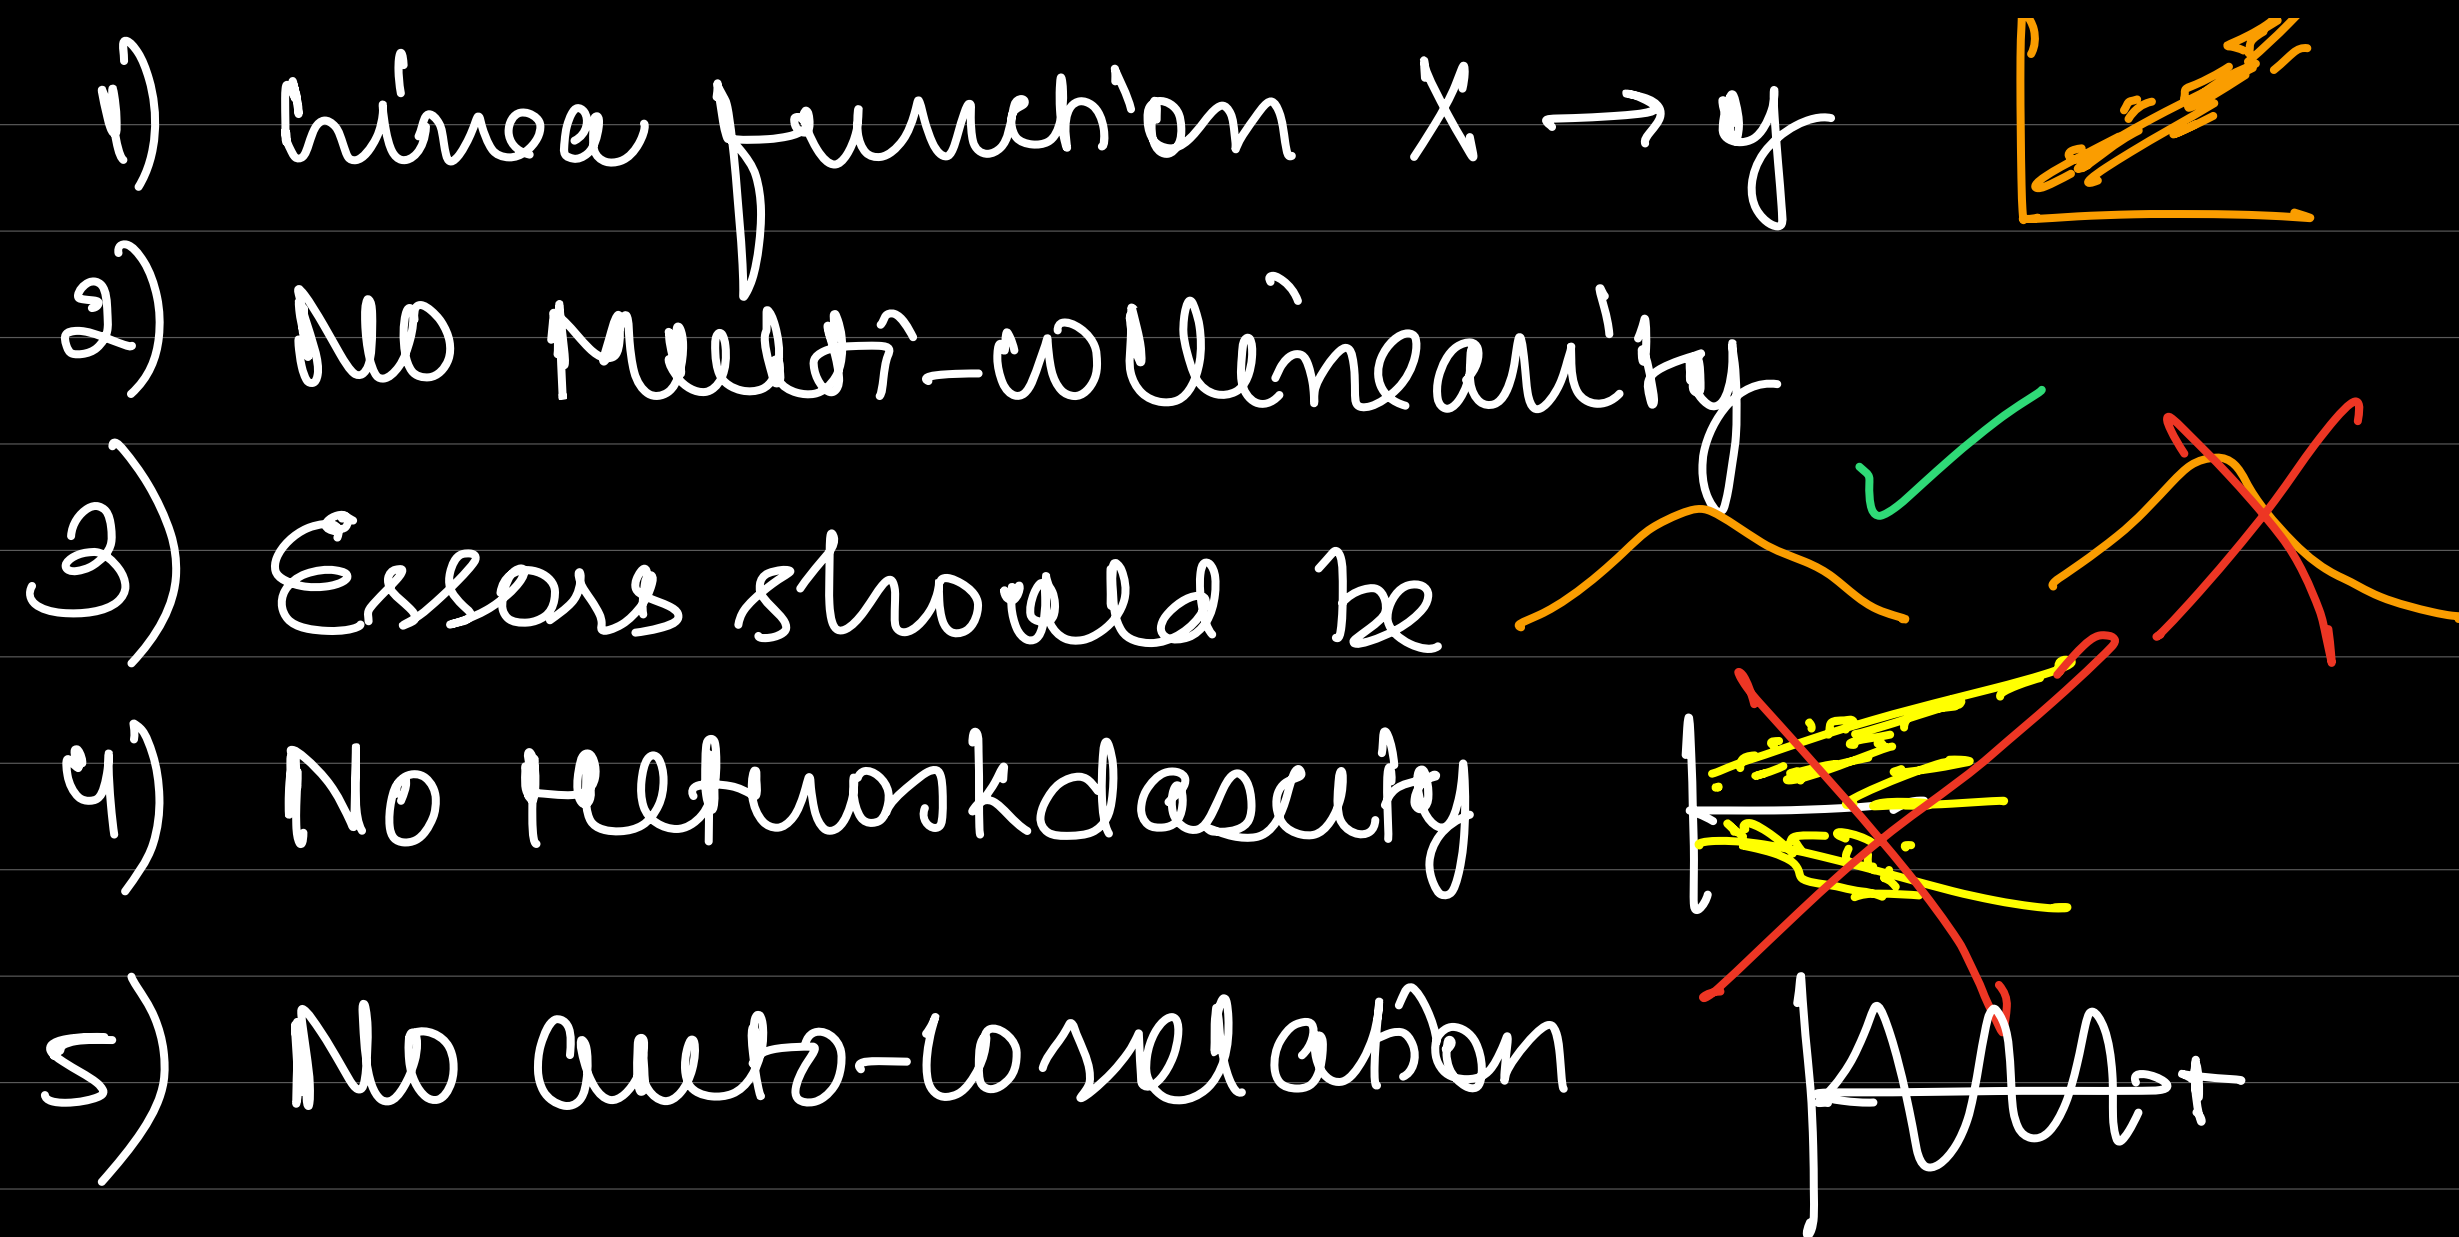 1) Linear function X → y
2) No Multi-collinearity
3) Errors should be
4) No Hetroskdascity
5) No auto-correlation t